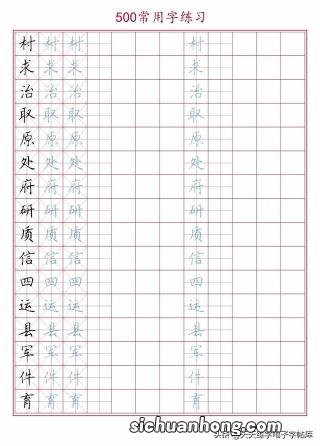 500常用字练习
村村村村
求求求求
治治治治
取取取取
原原原原
处处处处
府府府府
研研研研
质质质质
信信信信
四四四四
运运运运
县县县县
军军军军
件件件件
育育育育
sichuanhong.com